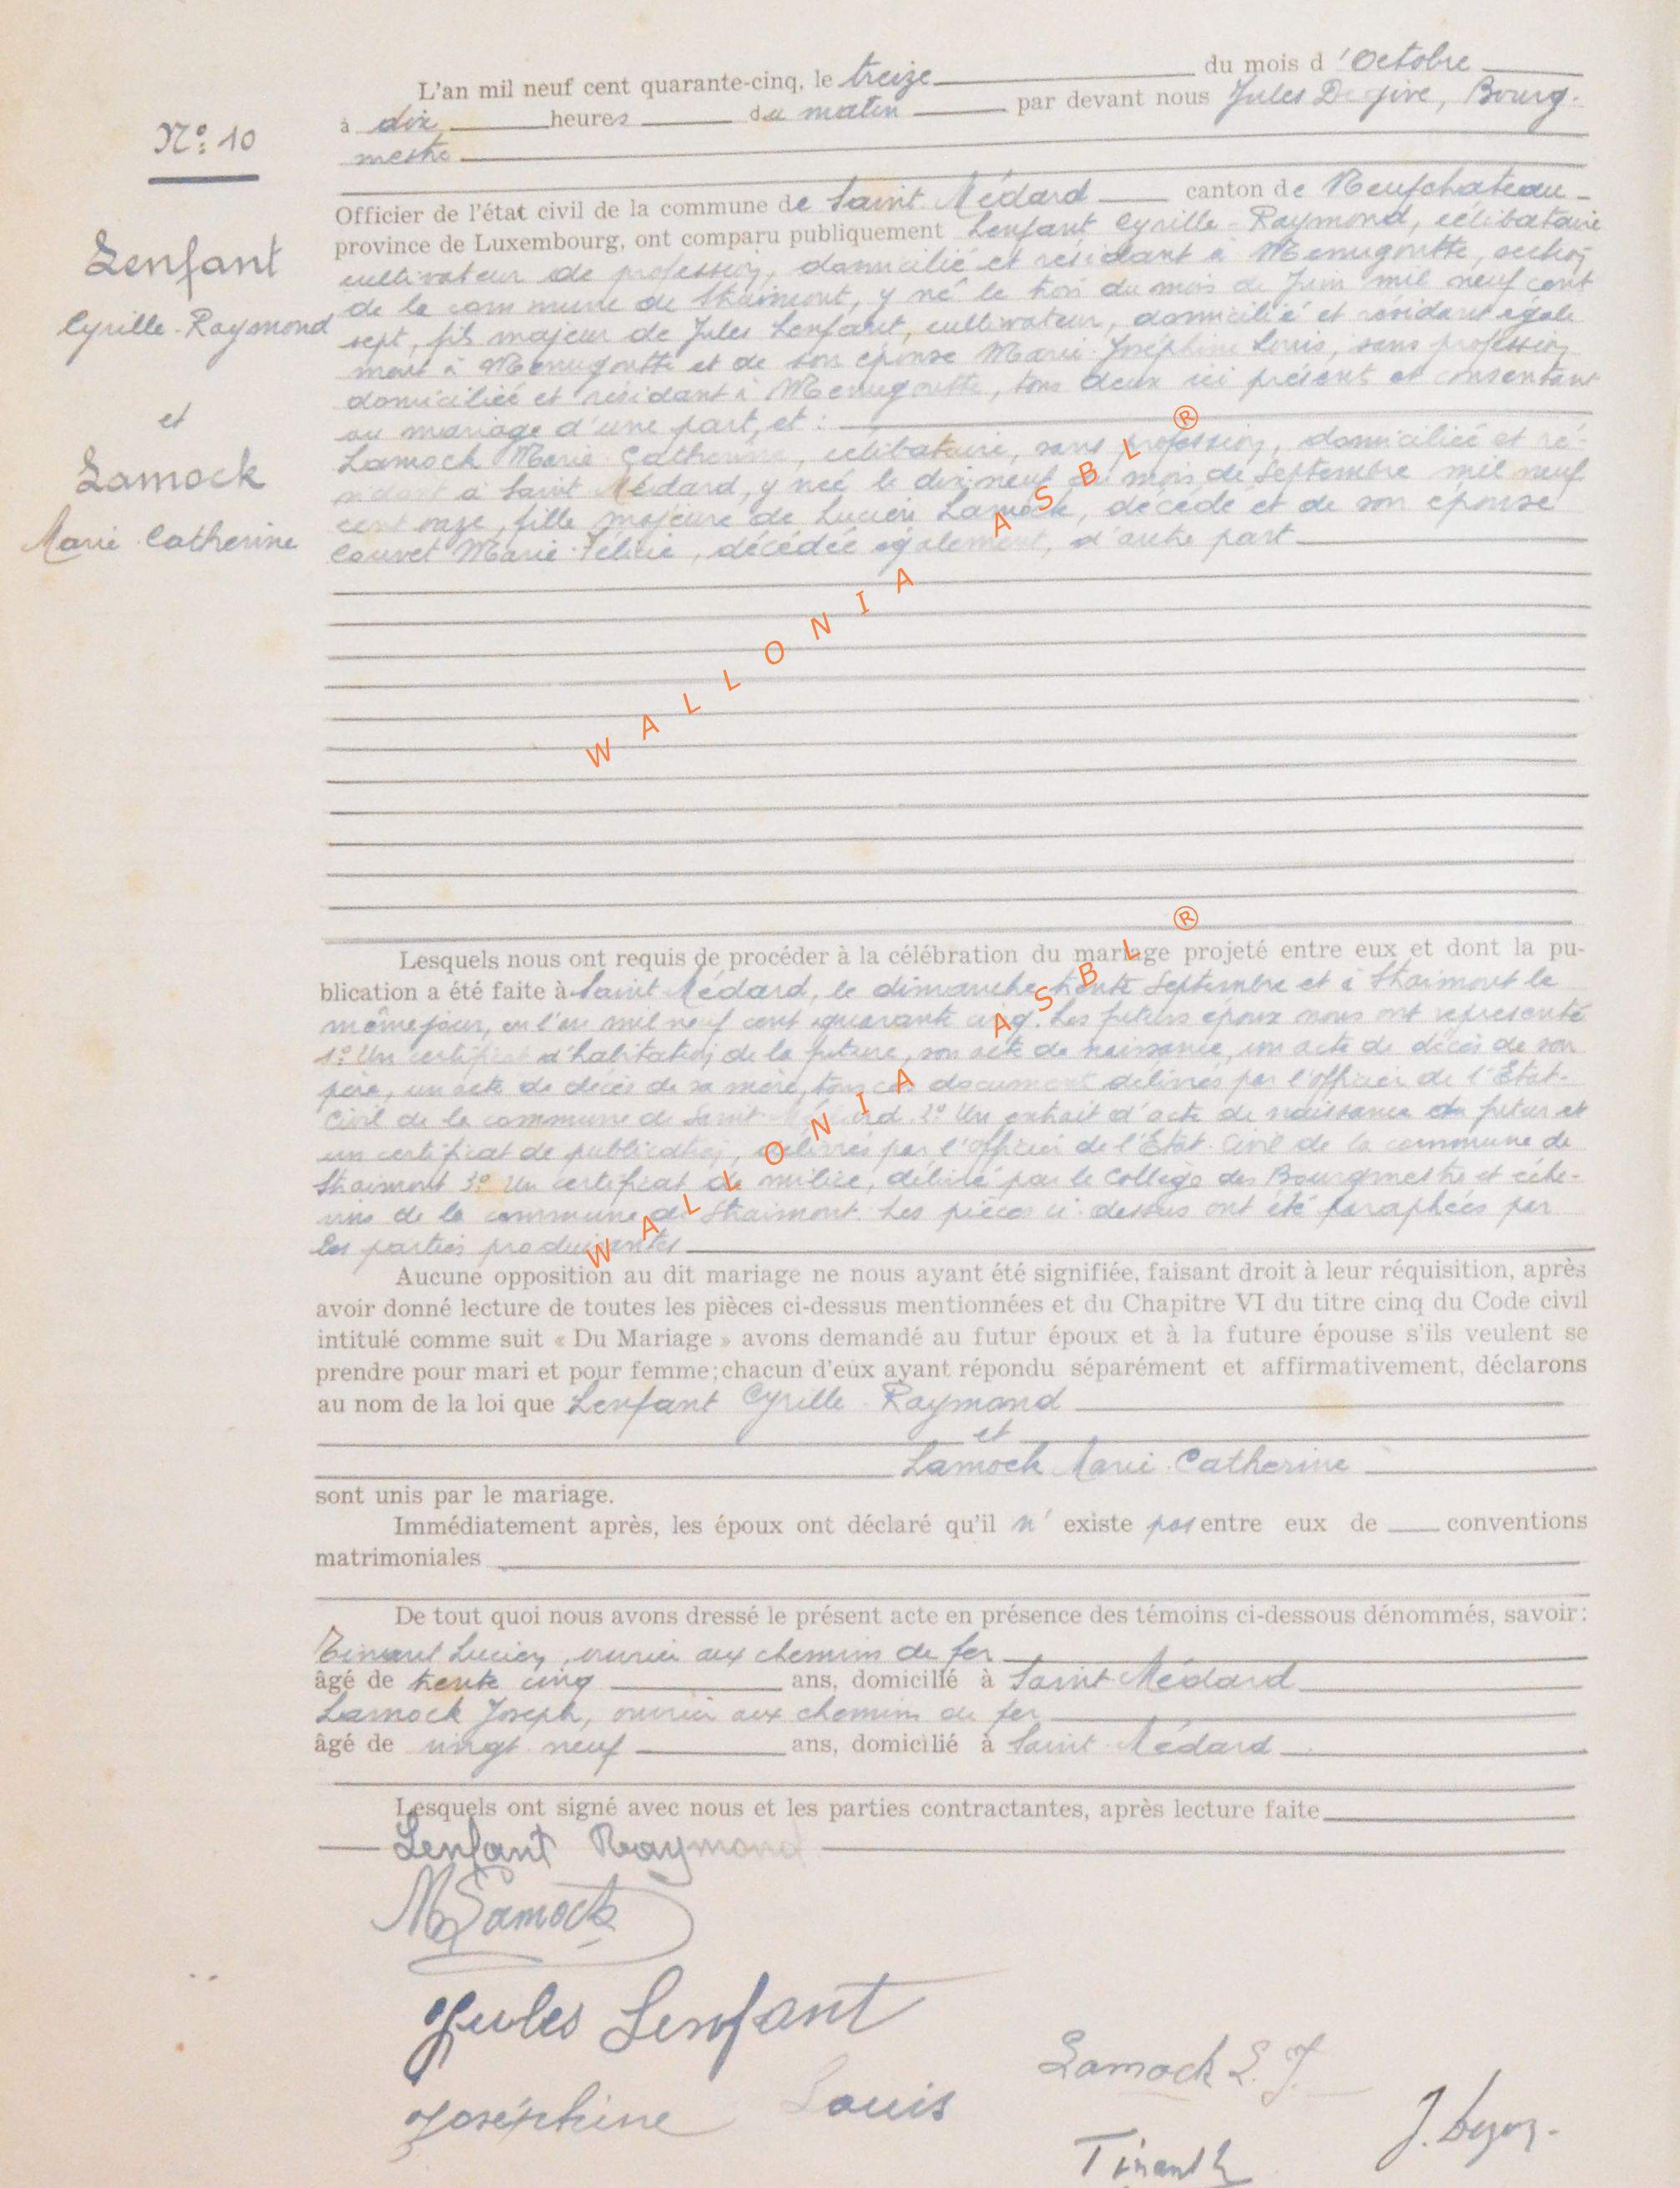 L'an mil neuf cent quarante-cinq, le treize du mois d'Octobre
à dix heures du matin par devant nous Jules Degive, Bourg-
mestre
N°: 10
Officier de l'état civil de la commune de Saint Médard canton de Neufchateau
province de Luxembourg, ont comparu publiquement Lenfant Cyrille-Raymond, célibataire
cultivateur de profession, domicilié et résidant à Menugoutte, section
de la commune de Straimont, y né le trois du mois de Juin mil neuf cent
sept, fils majeur de Jules Lenfant, cultivateur, domicilié et résidant égale
ment à Menugoutte et de son épouse Marie-Joséphine Louis, sans profession
domiciliée et résidant à Menugoutte, tous deux ici présents et consentant
au mariage d'une part, et :
Lenfant
Cyrille-Raymond
et
Lamock
Marie-Catherine
Lamock Marie-Catherine, célibataire, sans profession, domiciliée et ré-
sidant à Saint Médard, y née le dix-neuf du mois de Septembre mil neuf
cent onze, fille majeure de Lucien Lamock, décédé et de son épouse
Couvet Marie-Félicie, décédée également, d'autre part
Lesquels nous ont requis de procéder à la célébration du mariage projeté entre eux et dont la pu-
blication a été faite à Saint Médard, le dimanche trente Septembre et à Straimont le
même jour, en l'an mil neuf cent quarante cinq. Les futurs époux nous ont représenté
1° Un certificat d'habitation de la future, son acte de naissance, un acte de décès de son
père, un acte de décès de sa mère, tous ces documents délivrés par l'officier de l'Etat-
Civil de la commune de Saint-Médard. 2° Un extrait d'acte de naissance du futur et
un certificat de publication, délivrés par l'officier de l'Etat-Civil de la commune de
Straimont 3° Un certificat de milice, délivré par le Collège des Bourgmestre et éche-
vins de la commune de Straimont. Les pièces ci-dessus ont été paraphées par
les parties produisantes
Aucune opposition au dit mariage ne nous ayant été signifiée, faisant droit à leur réquisition, après
avoir donné lecture de toutes les pièces ci-dessus mentionnées et du Chapitre VI du titre cinq du Code civil
intitulé comme suit « Du Mariage » avons demandé au futur époux et à la future épouse s'ils veulent se
prendre pour mari et pour femme; chacun d'eux ayant répondu séparément et affirmativement, déclarons
au nom de la loi que Lenfant Cyrille-Raymond
et
Lamock Marie-Catherine
sont unis par le mariage.
Immédiatement après, les époux ont déclaré qu'il n'existe pas entre eux de conventions
matrimoniales
De tout quoi nous avons dressé le présent acte en présence des témoins ci-dessous dénommés, savoir:
Tinant Lucien, ouvrier aux chemins de fer
âgé de trente cinq ans, domicilié à Saint-Médard
Lamock Joseph, ouvrier aux chemins de fer
âgé de vingt neuf ans, domicilié à Saint-Médard
Lesquels ont signé avec nous et les parties contractantes, après lecture faite
Lenfant Raymond
M Lamock
Jules Lenfant
Lamock L. J.
Joséphine Louis
Tinant L
WALLONIA ASBL ®
WALLONIA ASBL ®